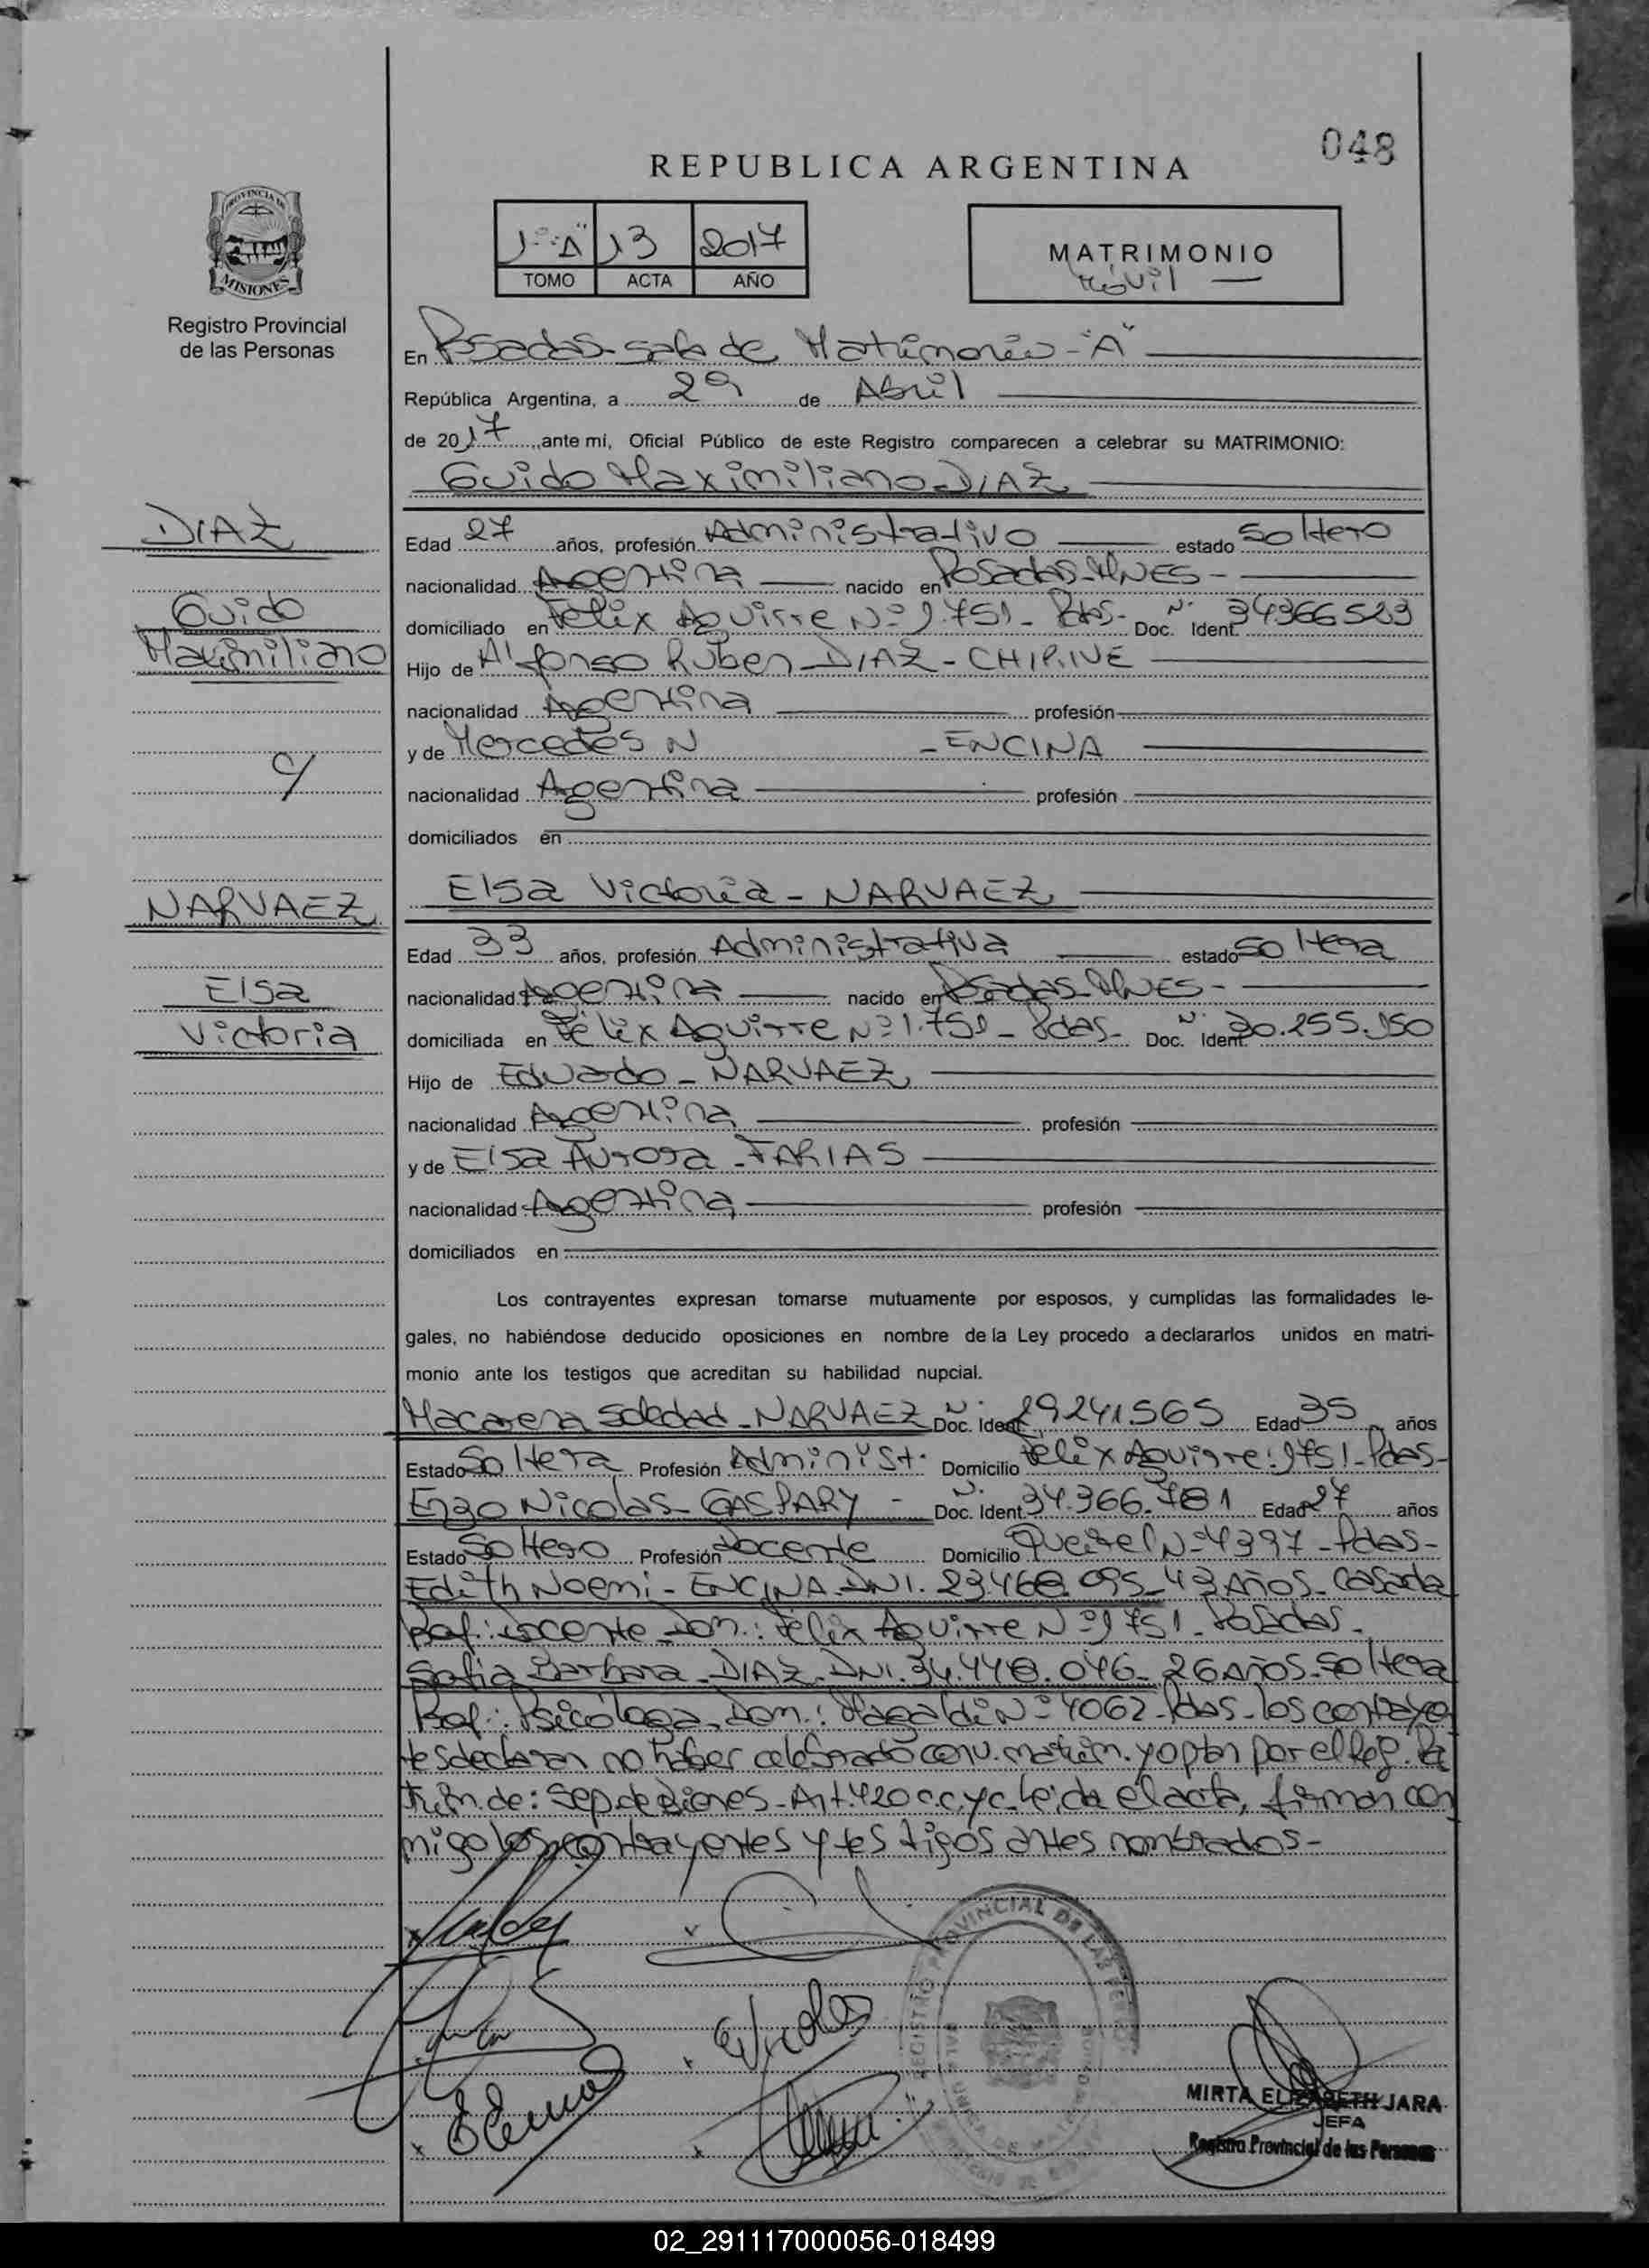 048
REPUBLICA ARGENTINA
PROVINCIA DE
MISIONES
Registro Provincial
de las Personas
1º "A" 13 2017
TOMO ACTA AÑO
MATRIMONIO
Móvil
En Posadas-sala de Matrimonio-"A"
República Argentina, a 29 de Abril
de 2017, ante mí, Oficial Público de este Registro comparecen a celebrar su MATRIMONIO:
Guido Maximiliano-DIAZ
DIAZ
Guido
Maximiliano
c/
NARVAEZ
Elsa
Victoria
Edad 27 años, profesión Administrativo estado Soltero
nacionalidad Argentina nacido en Posadas-Mnes-
domiciliado en Felix Aguirre Nº 1.751- Pdas- Doc. Ident. Nº 34366523
Hijo de Alfonso Ruben-DIAZ-CHIRIVE
nacionalidad Argentina profesión
y de Mercedes N -ENCINA
nacionalidad Argentina profesión
domiciliados en
Elsa Victoria-NARVAEZ
Edad 33 años, profesión Administrativa estado Soltera
nacionalidad Argentina nacido en Posadas-Mnes-
domiciliada en Félix Aguirre Nº 1.751- Pdas- Doc. Ident. Nº 30.255.150
Hijo de Eduardo-NARVAEZ
nacionalidad Argentina profesión
y de Elsa Aurora-FARIAS
nacionalidad Argentina profesión
domiciliados en
Los contrayentes expresan tomarse mutuamente por esposos, y cumplidas las formalidades le-
gales, no habiéndose deducido oposiciones en nombre de la Ley procedo a declararlos unidos en matri-
monio ante los testigos que acreditan su habilidad nupcial.
Macarena Soledad-NARVAEZ Doc. Ident. Nº 29241565 Edad 35 años
Estado Soltera Profesión Administ. Domicilio Felix Aguirre:1751-Pdas-
Enzo Nicolas-GASPARY- Doc. Ident. Nº 34.366.781 Edad 27 años
Estado Soltero Profesión Docente Domicilio Nº 4397-Pdas-
Edith Noemi-ENCINA.DNI.23.468.095-43 Años-Casada
Prof.:Docente-Dom.: Félix Aguirre Nº 1751-Posadas.
Sofia Barbara-DIAZ-DNI.34.448.046-26 Años-Soltera
Prof.: Psicóloga-Dom.: Magaldi Nº 4062-Pdas-los contrayen
tes declaran no haber celebrado conv. matrim. y optan por el Reg. Pa
trim. de: Sep. de Bienes-Art.420 c.c. y c. Leida el acta, firman con
migo los contrayentes y testigos antes nombrados-
MIRTA ELIZABETH JARA
JEFA
Registro Provincial de las Personas
02_291117000056-018499